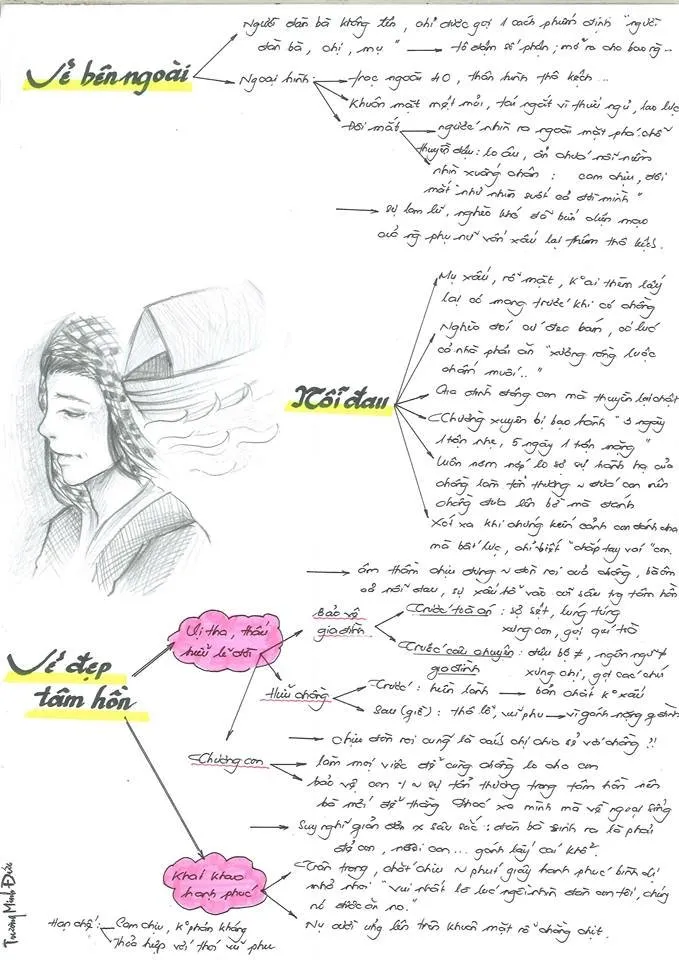 Vẻ bên ngoài
Người đàn bà không tên, chỉ được gọi 1 cách phiếm định "người
đàn bà, chị, mụ" → tô đậm số phận; mở ra cho bao ng...
Ngoại hình:
trạc ngoài 40, thân hình thô kệch...
Khuôn mặt mệt mỏi, tái ngắt vì thức ngủ, lao lực
Đôi mắt
ngước nhìn ra ngoài mặt phá: chỗ
thuyền đậu: lo âu, ẩn chứa nỗi niềm
nhìn xuống chân: cam chịu, đôi
mắt "như nhìn suốt cả đời mình"
→ sự lam lũ, nghèo khó đã bủa diện mạo
của ng phụ nữ vốn xấu lại thêm thô kệch.
Nỗi đau
Mụ xấu, rỗ mặt, k ai thèm lấy
lại có mang trước khi có chồng
Nghèo đói cứ đeo bám, có lúc
cả nhà phải ăn "xương rồng luộc
chấm muối.."
Gia đình đông con mà thuyền lại chật
Thường xuyên bị bạo hành "3 ngày
1 trận nhẹ, 5 ngày 1 trận nặng"
Luôn nơm nớp lo sợ sự hành hạ của
chồng làm tổn thương ~ đứa con nên
chồng đưa lên bờ mà đánh
Xót xa khi chứng kiến cảnh con đánh cha
mà bất lực, chỉ biết "chắp tay vái" con.
→ âm thầm chịu đựng ~ đòn roi của chồng, bà ôm
cả nỗi đau, sự xấu hổ vào cõi sâu trg tâm hồn
Vẻ đẹp
tâm hồn
Vị tha, thấu
hiểu lẽ đời
Bảo vệ
gia đình
Trước toà án: sợ sệt, lúng túng
xưng con, gọi quí toà
Trước câu chuyện: điệu bộ ≠, ngôn ngữ ≠
gia đình
xưng chị, gọi các chú
Hiểu chồng
Trước: hiền lành → bản chất k xấu
Sau (giờ): thô lỗ, vũ phu → vì gánh nặng gia đình
→ chịu đòn roi cũng là cách chị chia sẻ với chồng ?!
Thương con
làm mọi việc để cùng chồng lo cho con
bảo vệ con ~ sự tổn thương trong tâm hồn nên
bà mới để thằng Phác xa mình mà về ngoại sống
→ Suy nghĩ giản đơn x sâu sắc: đàn bà sinh ra là phải
đẻ con, nuôi con... gánh lấy cái khổ.
Khát khao
hạnh phúc
Trân trọng, chắt chiu ~ phút giây hạnh phúc bình dị
nhỏ nhoi "vui nhất là lúc ngồi nhìn đàn con tôi, chúng
nó được ăn no."
Nụ cười ửng lên trên khuôn mặt rỗ chằng chịt.
Hạn chế:
Cam chịu, k phản kháng
Thỏa hiệp với thói vũ phu
Trương Minh Đức